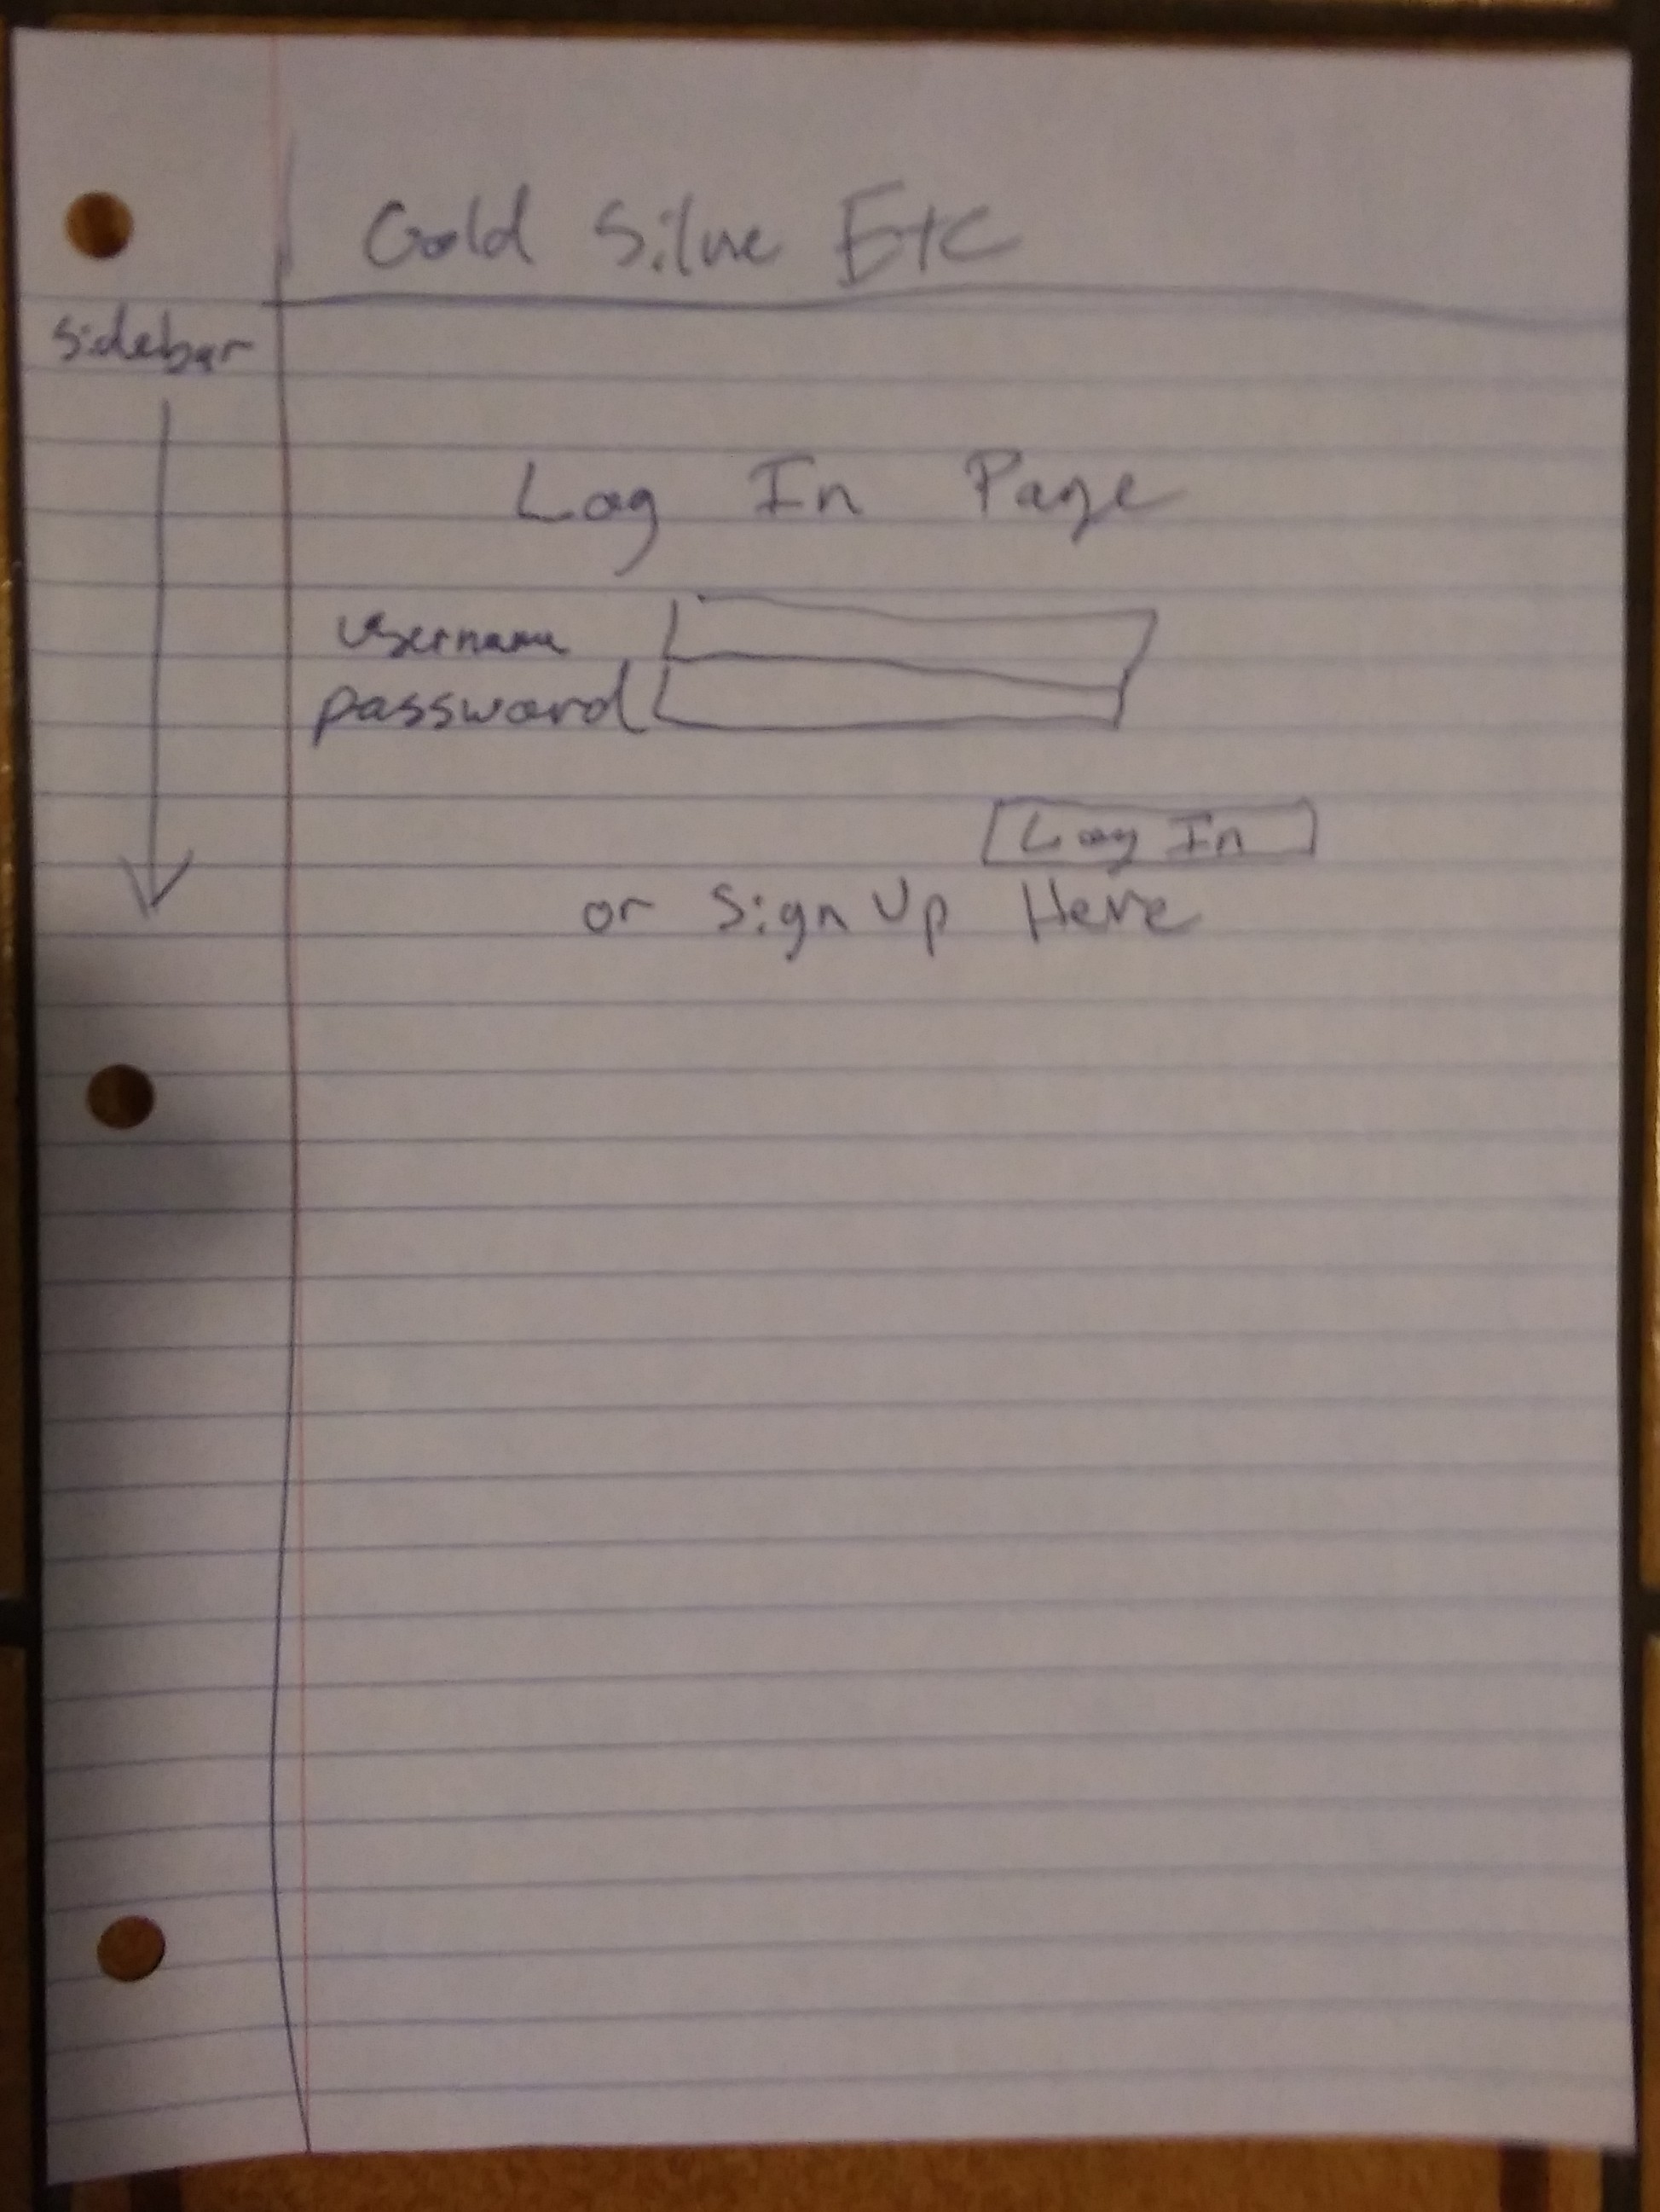 Gold Silve Etc
sidebar
Log In Page
username
password
Log In
or Sign Up Here